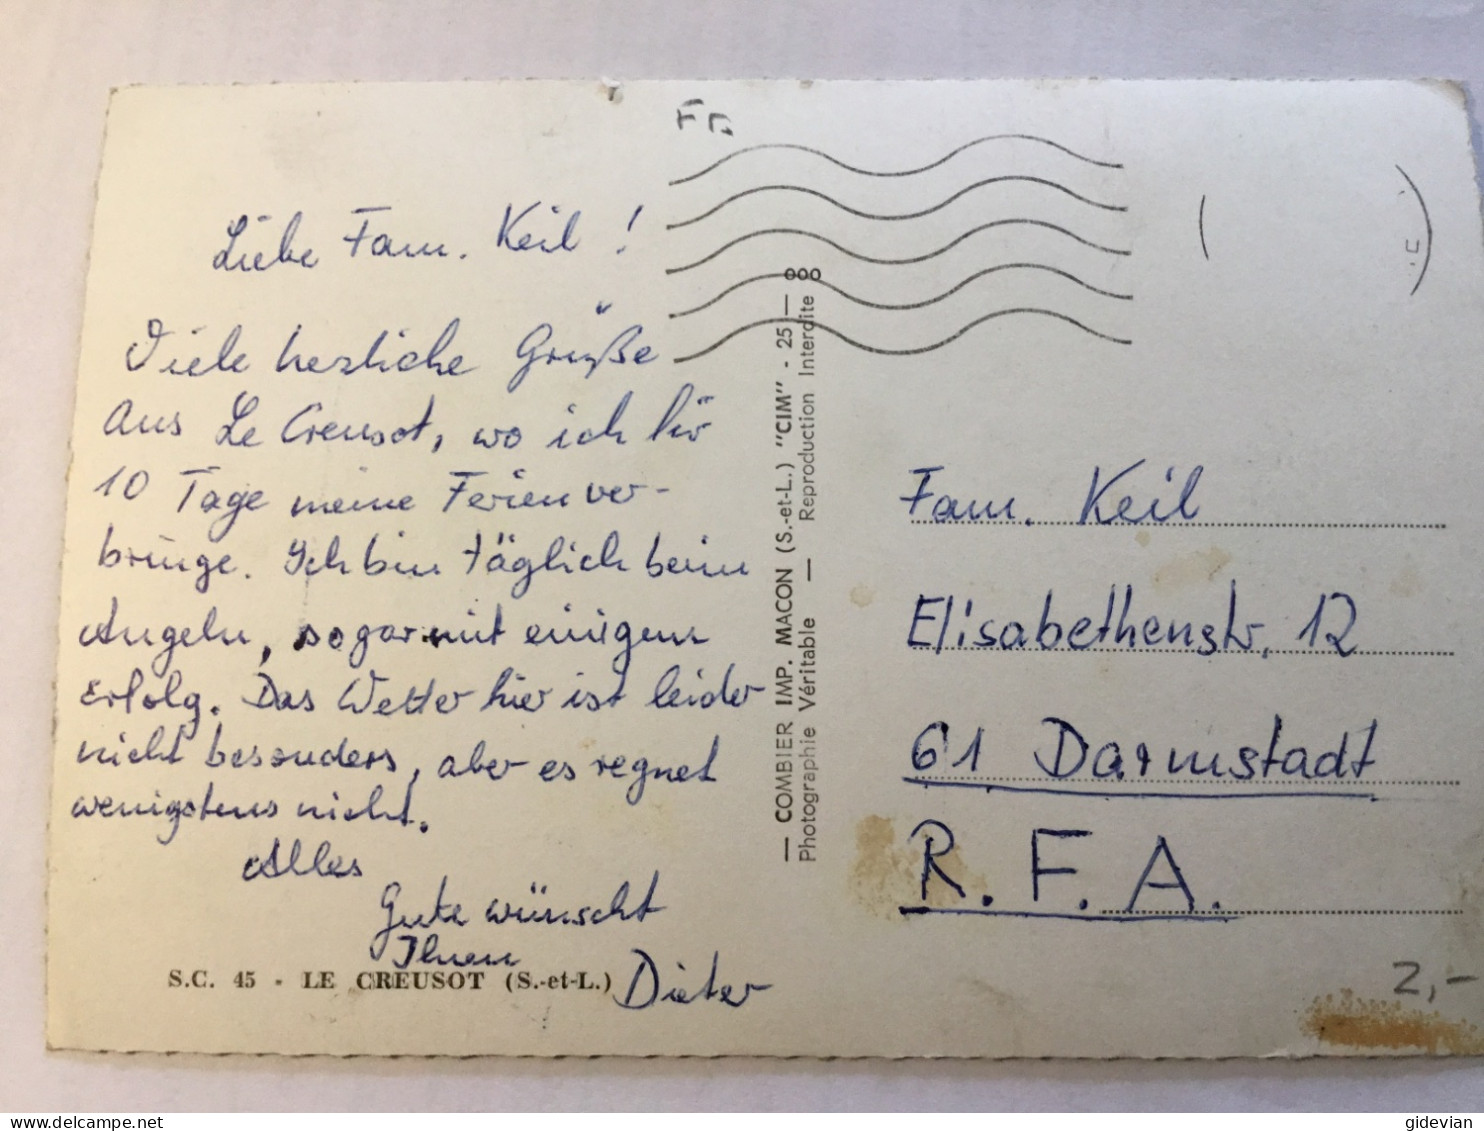 Fr.
Liebe Fam. Keil !
Viele herzliche Grüße
aus Le Creusot, wo ich für
10 Tage meine Ferien ver-
bringe. Ich bin täglich beim
Angeln, sogar mit einigem
Erfolg. Das Wetter hier ist leider
nicht besonders, aber es regnet
wenigstens nicht.
Alles
Gute wünscht
Ihnen
Dieter
S.C. 45 - LE CREUSOT (S.-et-L.)
— COMBIER IMP. MACON (S.-et-L.) "CIM" - 25 — ooo
Photographie Véritable — Reproduction Interdite
Fam. Keil
Elisabethenstr. 12
61 Darmstadt
R.F.A.
2,-
delcampe.net
gidevian